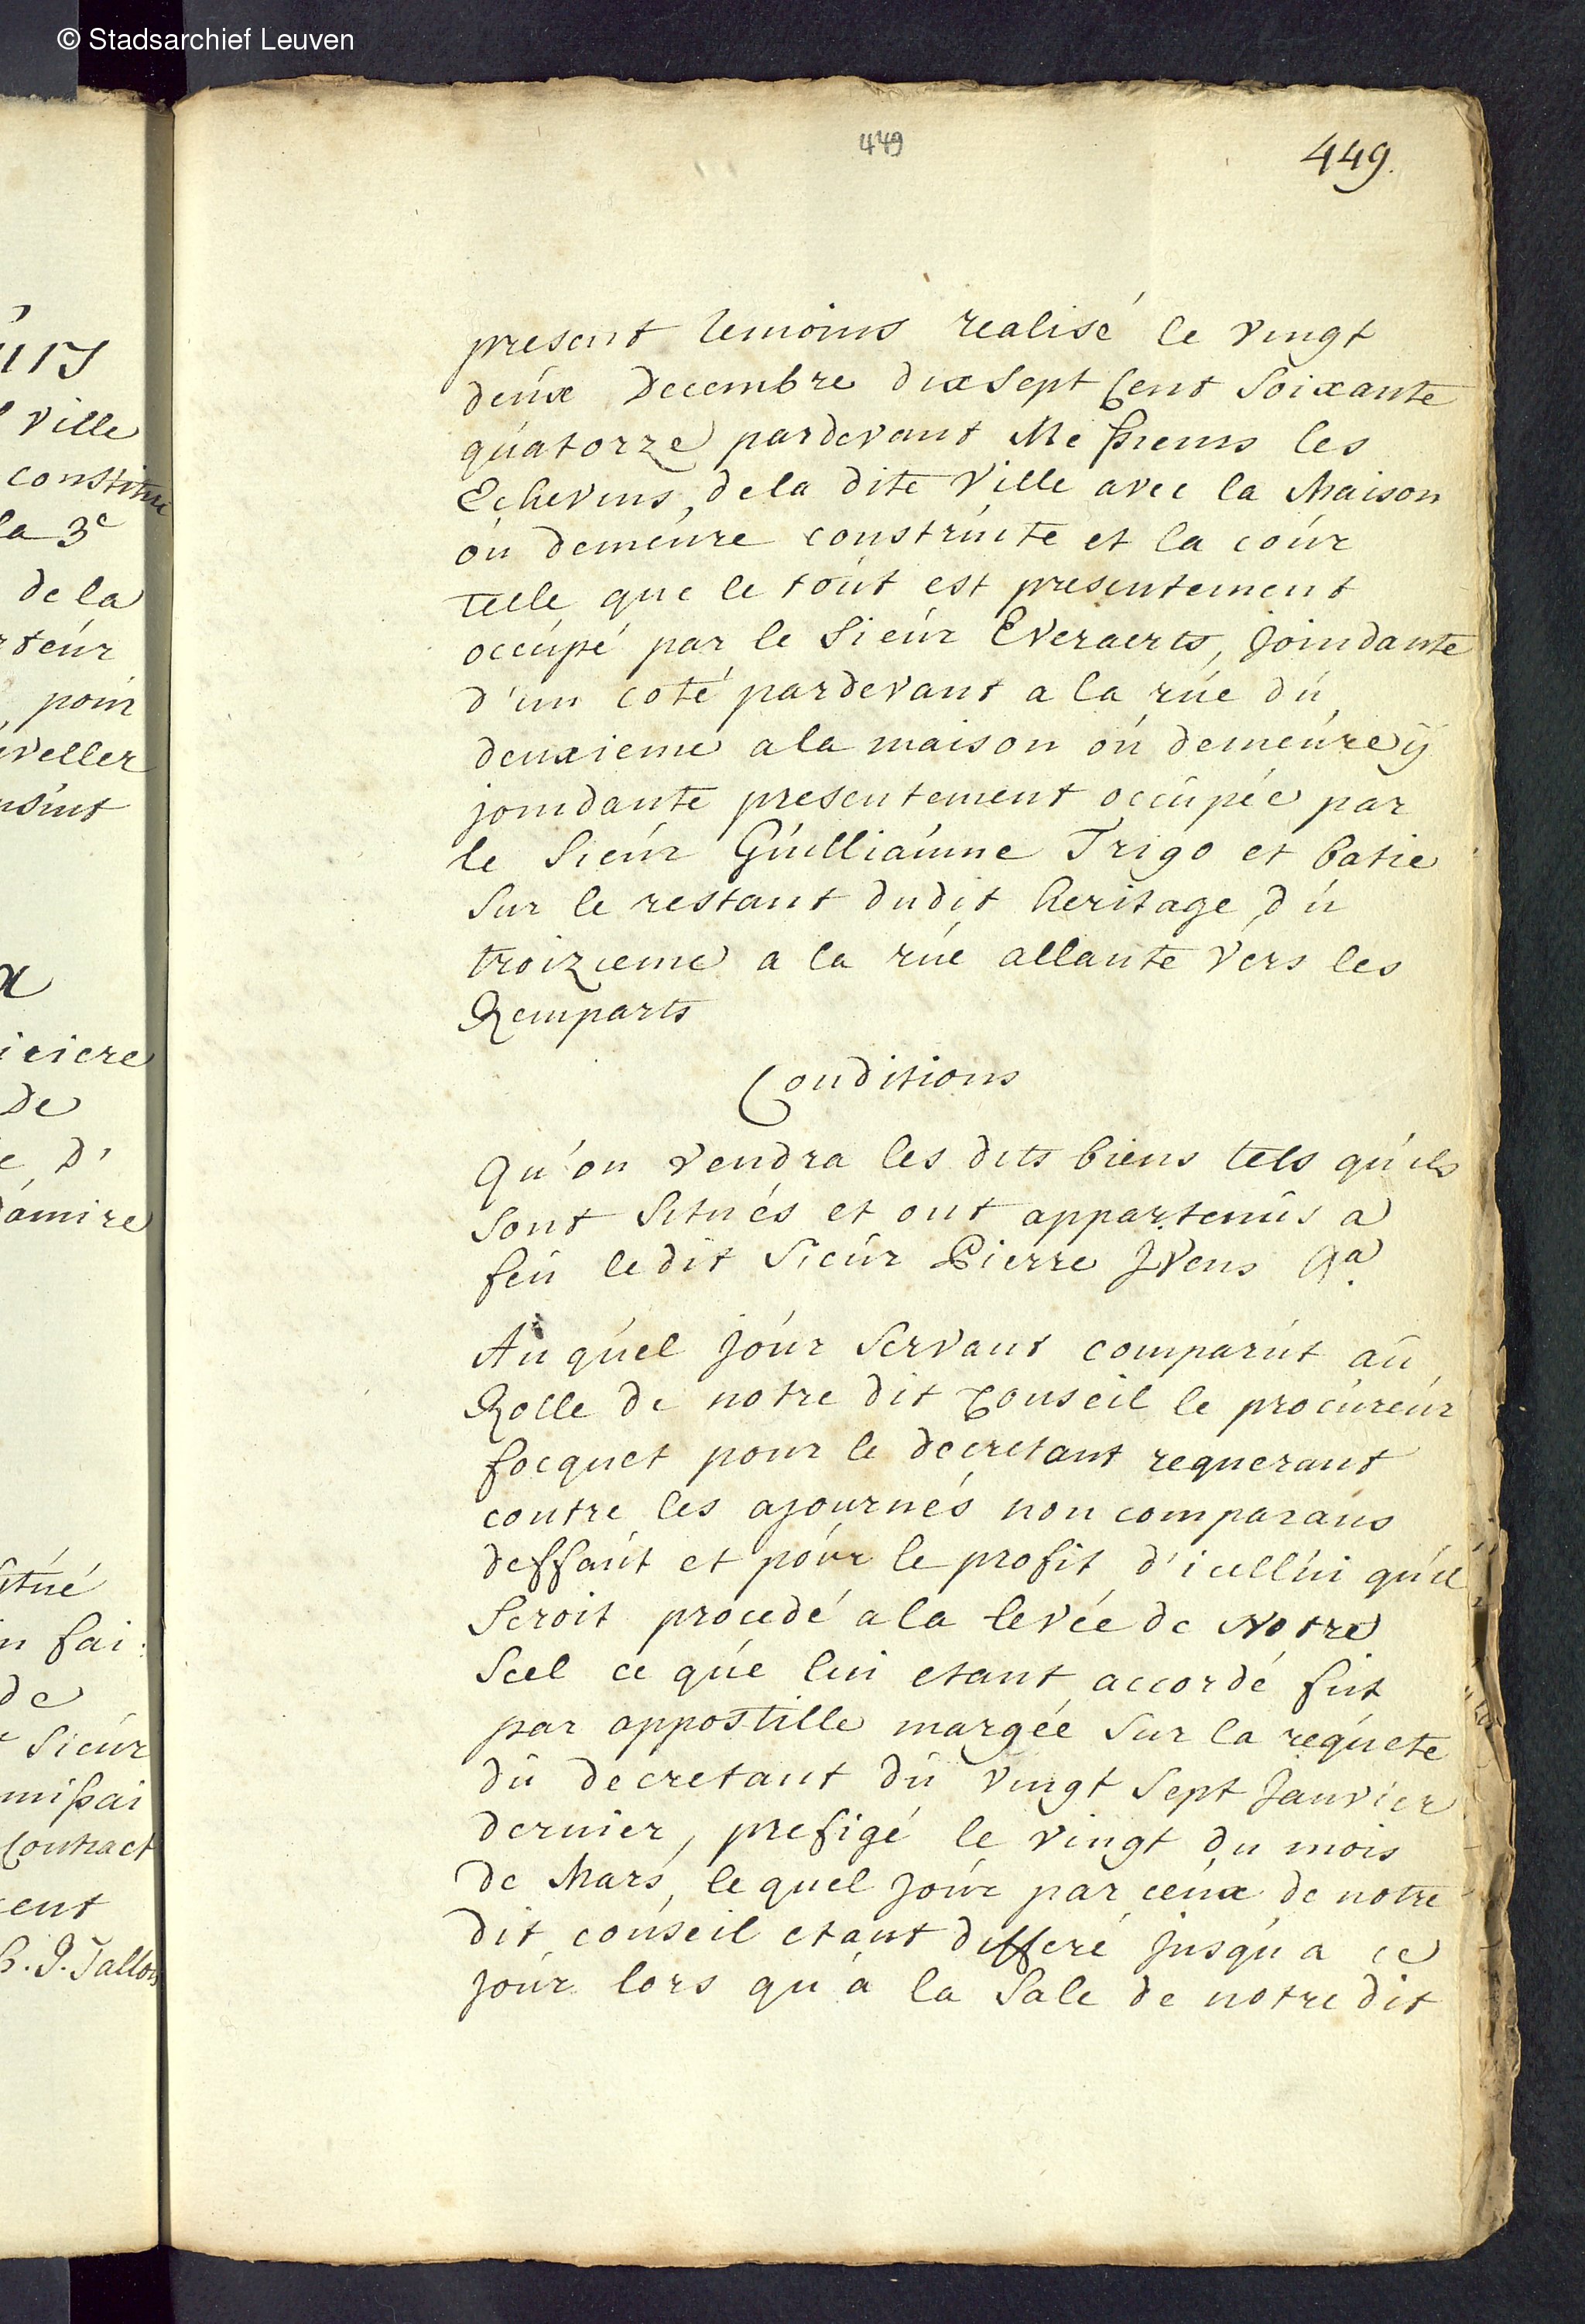 © Stadsarchief Leuven
449
449.
present temoins realisé le vingt
deux Decembre dix sept Cent Soixante
quatorze pardevant Messieurs les
Echevins, dela dite Ville avec la Maison
ou demeure construite et la cour
telle que le tout est presentement
occupé par le Sieur Everaerts, Joindante
d'un coté pardevant a la rue du
deuxieme ala maison ou demeure ÿ
joindante presentement occupée par
le Sieur Guilliaume Trigo et batie
Sur le restant dudit heritage, du
troizieme a la rue allante vers les
Remparts
Conditions
Qu'on vendra les dits biens tels qu'ils
Sont Situés et ont appartenus a
feu ledit Sieur Pierre Jvens &a
Au quel Jour Servant comparut au
Rolle de notre dit Conseil le procureur
focquet pour le decretant requerant
contre les ajournés non comparans
deffaut et pour le profit d'icellui qu'il
Seroit procedé ala levée de Notre
Scel ce que lui etant accordé fut
par appostille margée Sur la requete
du decretant du vingt Sept Janvier
dernier, prefigé le vingt du mois
de Mars, le quel Jour par ceux de notre
dit conseil etant differé Jusqu'a ce
Jour lors qu'a la Sale de notre dit
ville
constitue
la 3e
de la
rteur
pour
veller
nsint
x
iciere
De
e D'
itué
n fai:
de
Sieur
missai
Contract
cent
J. Tallon